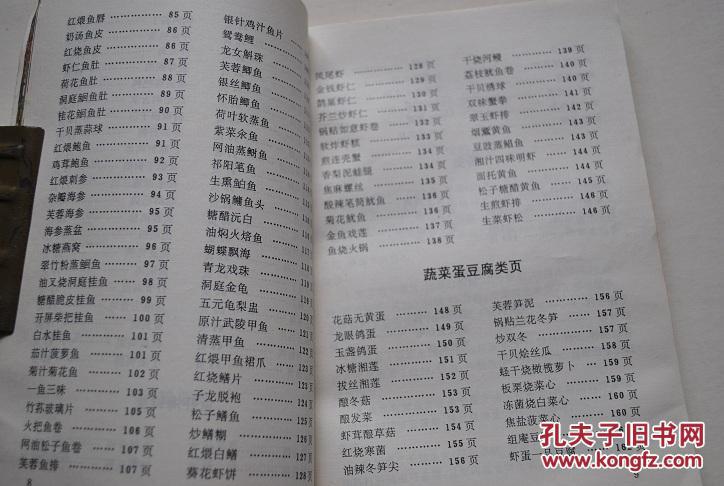 红煨鱼唇 85 页
奶汤鱼皮 86 页
红烧鱼皮 86 页
虾仁鱼肚 87 页
荷花鱼肚 88 页
洞庭鮰鱼肚 89 页
桂花鮰鱼肚 90 页
干贝蒸蒜球 91 页
红煨鲍鱼 91 页
鸡茸鲍鱼 92 页
红煨刺参 92 页
杂瓣海参 94 页
芙蓉海参 94 页
海参蒸盆 95 页
冰糖燕窝 96 页
翠竹粉蒸鮰鱼 97 页
油叉烧洞庭桂鱼 98 页
糖醋脆皮桂鱼 99 页
开屏柴把桂鱼 100 页
白水桂鱼 101 页
茄汁菠萝鱼 101 页
菊汁菊花鱼 102 页
一鱼三味 103 页
竹荪玻璃片 105 页
火把鱼卷 106 页
网油松子鱼卷 107 页
芙蓉鱼排 107 页
8
银针鸡汁鱼片
鸳鸯鲤
龙女斛珠
芙蓉鲫鱼
银丝鲫鱼
怀胎鲫鱼
荷叶软蒸鱼
紫菜汆鱼
网油蒸鲥鱼
祁阳笔鱼
生熏鲌鱼
沙锅鳙鱼头
糖醋沅白
油焖火焙鱼
蝴蝶飘海
青龙戏珠
洞庭金龟
五元龟梨盅
原汁武陵甲鱼
清蒸甲鱼
红煨甲鱼裙爪
红烧鳝片
子龙脱袍
松子鳝鱼
炒鳝糊 127 页
红煨白鳝 127 页
葵花虾饼 128 页
凤尾虾 128 页
金钱虾仁 129 页
鹊巢虾仁 130 页
芥兰炒虾仁 131 页
锅贴如意虾卷 132 页
软炸虾糕 133 页
煎连壳蟹 134 页
香梨泥蛙腿 134 页
焦麻螺丝 135 页
酸辣笔筒鱿鱼 136 页
菊花鱿鱼 136 页
金鱼戏莲 137 页
鱼烧火锅 138 页
干烧河鳗 139 页
荔枝鱿鱼卷 140 页
干贝绣球 140 页
双味蟹拳 141 页
翠玉虾排 142 页
烟薰黄鱼 142 页
豆豉蒸鲳鱼 143 页
湘汁四味明虾 143 页
面托黄鱼 144 页
松子糖醋黄鱼 145 页
生煎虾排 146 页
生菜虾松 146 页
蔬菜蛋豆腐类页
花菇无黄蛋 148 页
龙眼鸽蛋 149 页
玉盏鸽蛋 150 页
冰糖湘莲 151 页
拔丝湘莲 152 页
酿冬菇 153 页
酿发菜 153 页
虾茸酿草菇 154 页
红烧寒菌 155 页
油辣冬笋尖 156 页
芙蓉笋泥 156 页
锅贴兰花冬笋 157 页
炒双冬 157 页
干贝烩丝瓜 158 页
蛙干烧橄榄萝卜 159 页
板栗烧菜心 159 页
冻菌烧白菜心 160 页
焦盐菠菜心 160 页
组庵豆
虾蛋一品豆腐 162 页
9
孔夫子旧书网
kongfz.com